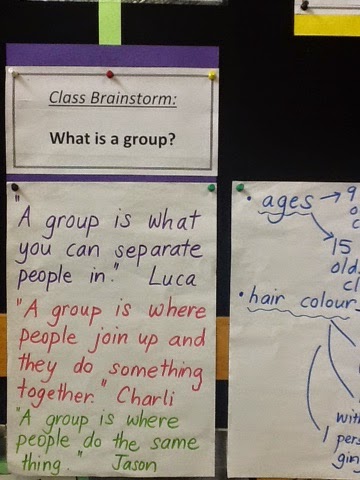 Class Brainstorm:
What is a group?
"A group is what
you can separate
people in." Luca
"A group is where
people join up and
they do something
together." Charli
"A group is where
people do the same
thing." Jason
• ages → 9
15
old
• hair colour
1 pers